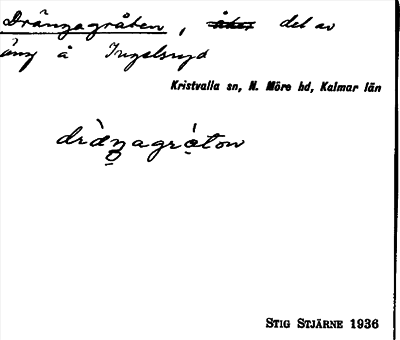 Drängagråten, åker del av
äng å Ingelsryd
Kristvalla sn, N. Möre hd, Kalmar län
dràŋagrǻton
STIG STJÄRNE 1936